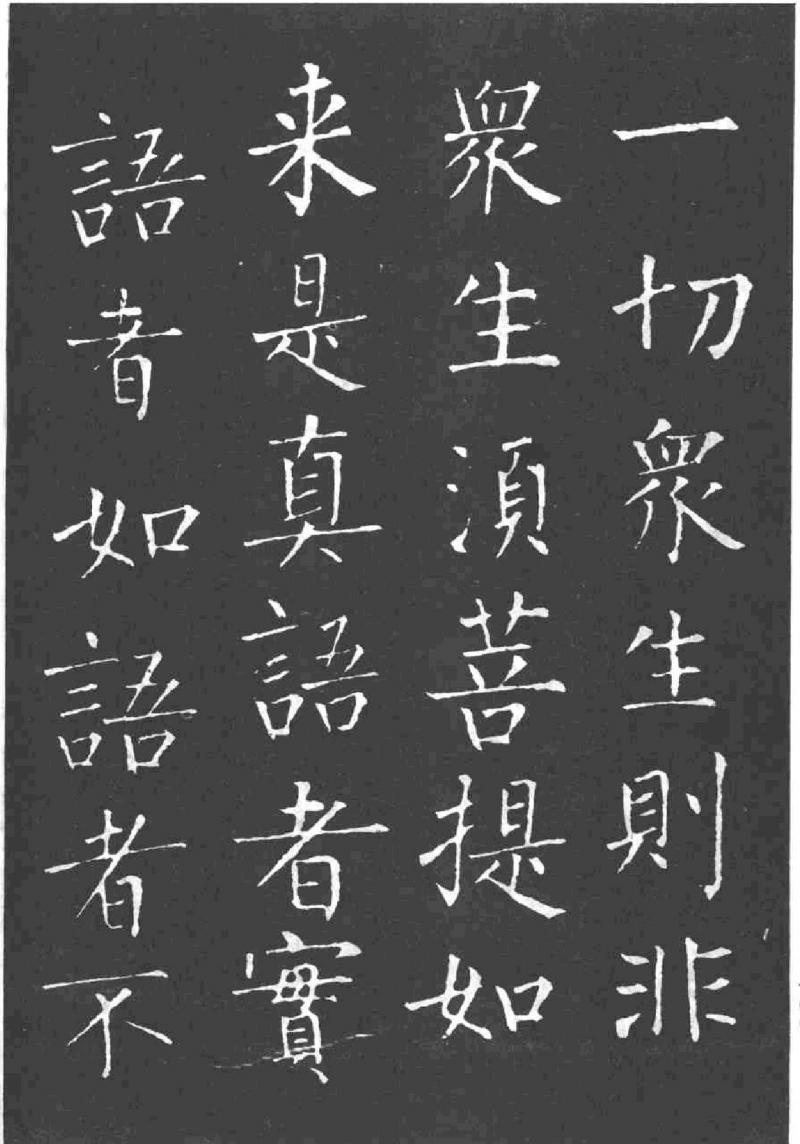 一切衆生則非
衆生湏菩提如
来是真語者實
語者如語者不